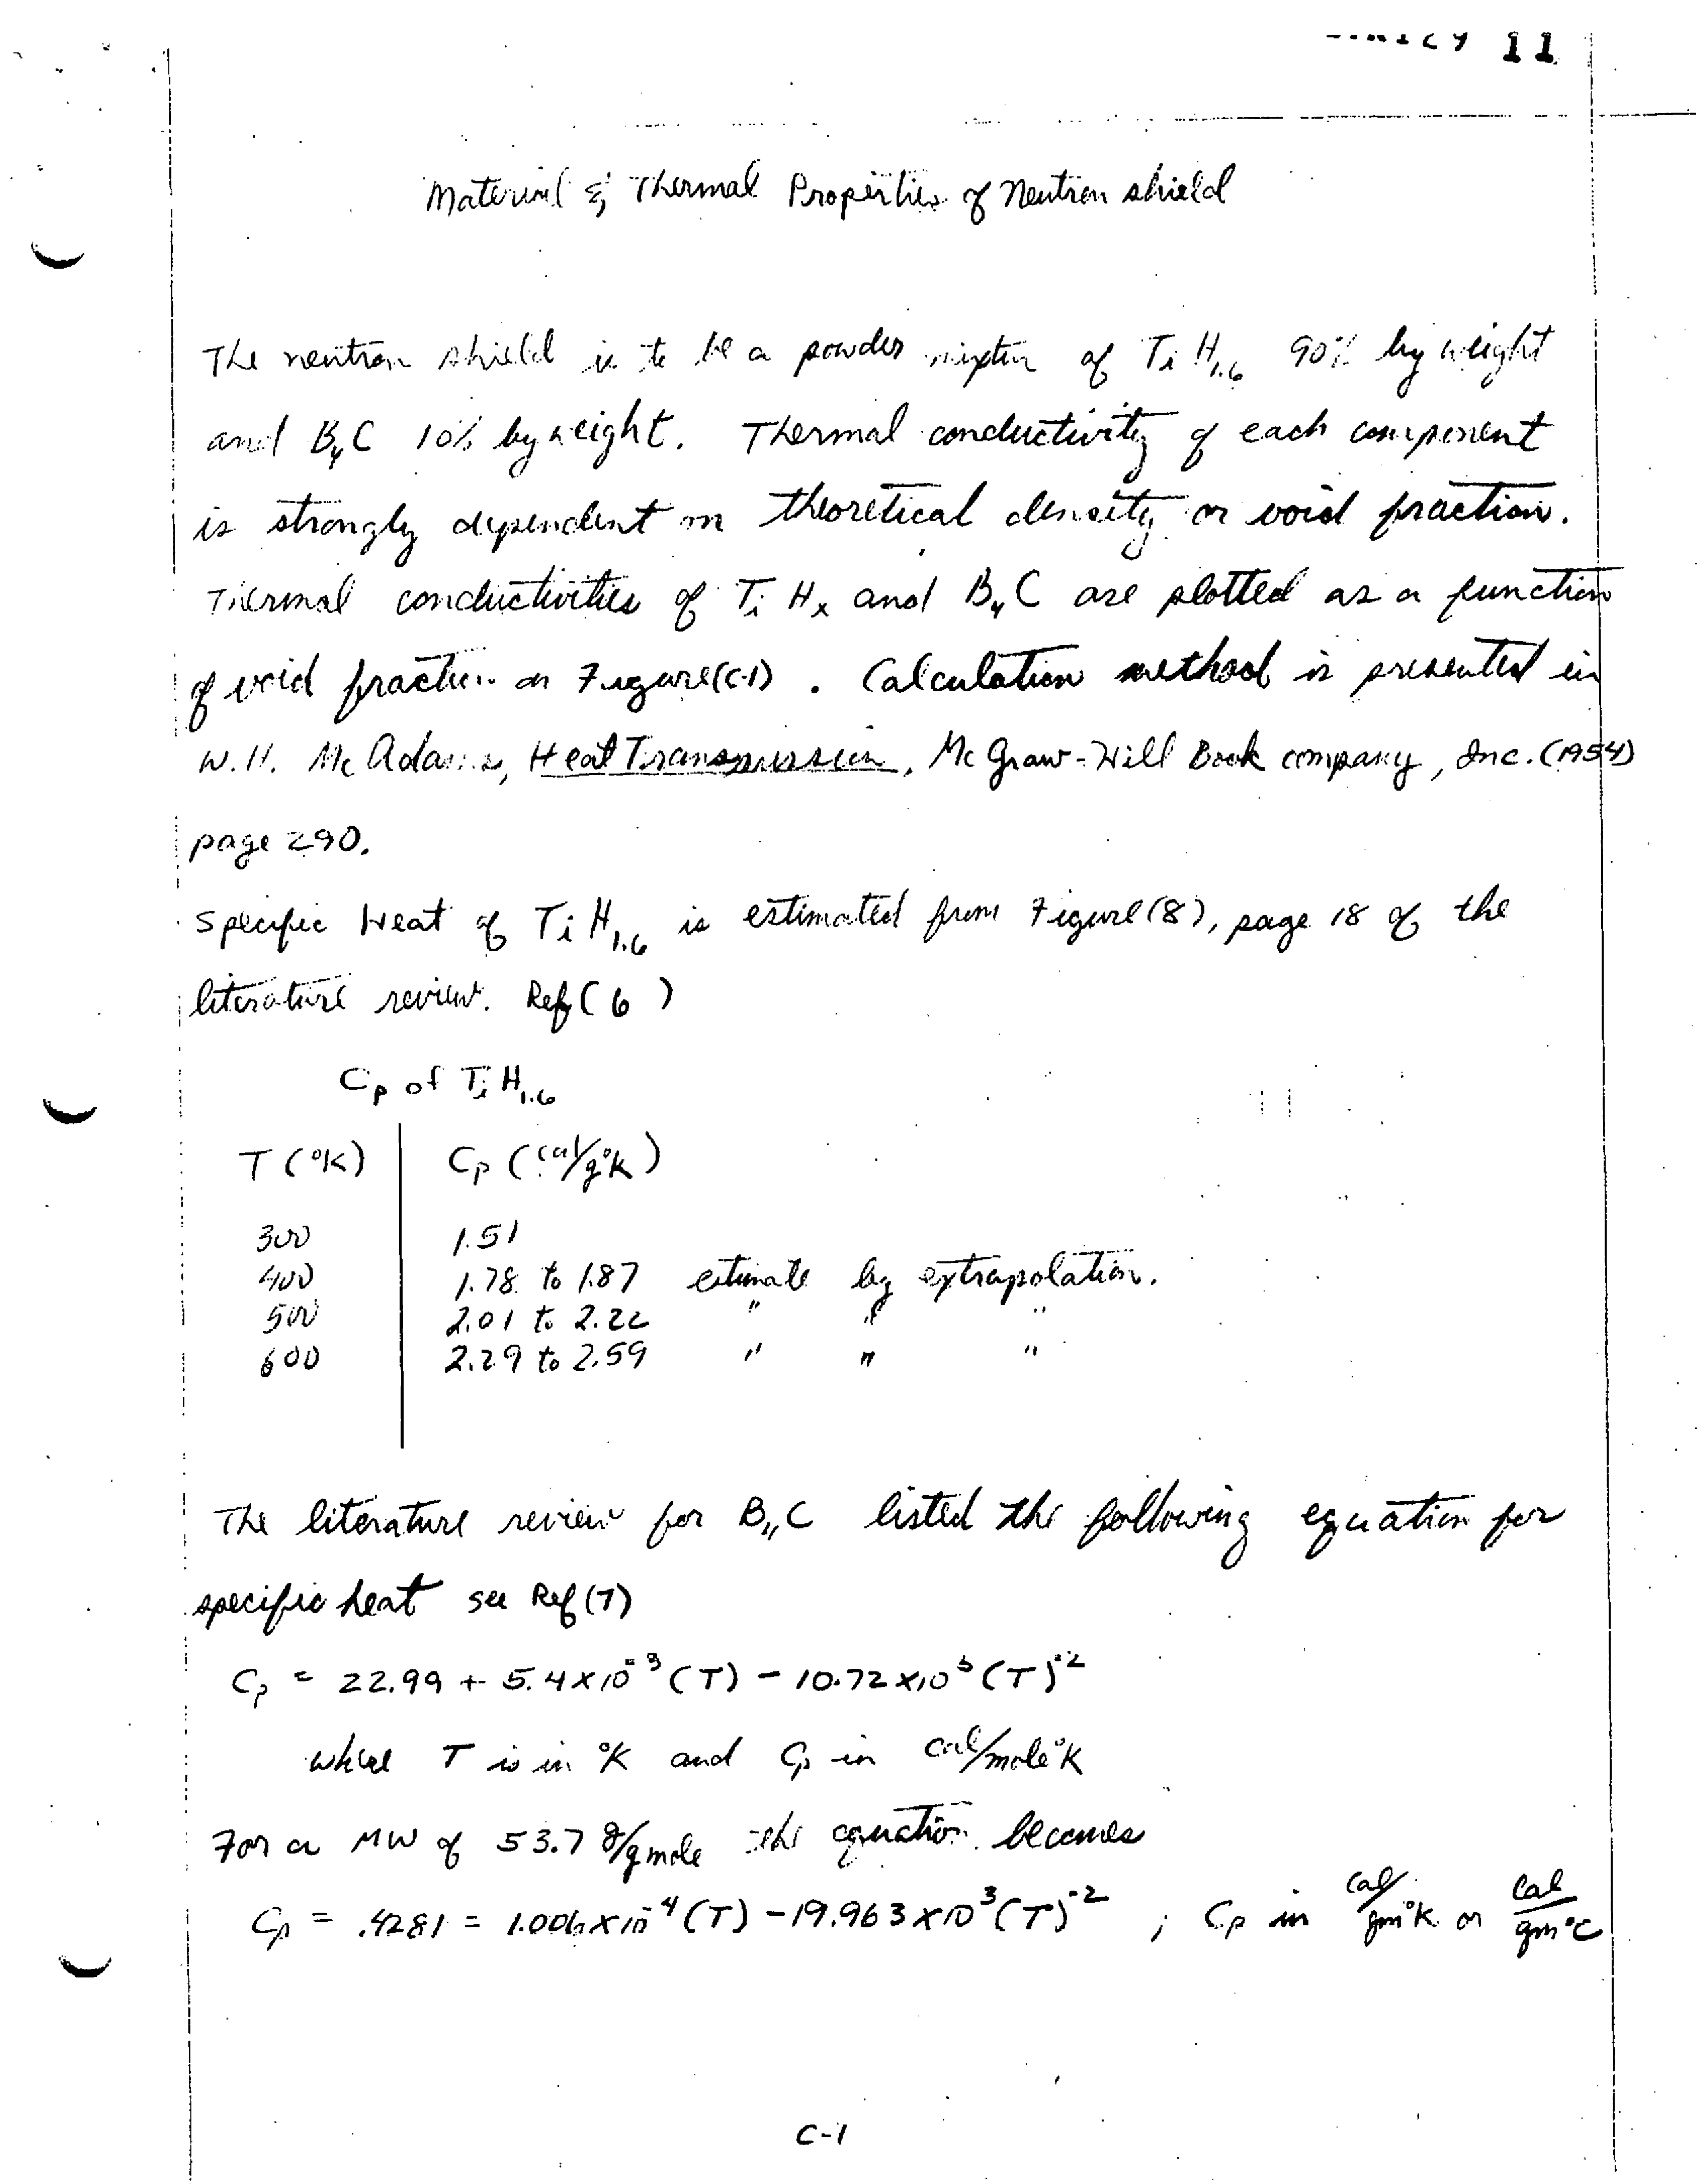 11
Material & Thermal Properties of Neutron shield
The neutron shield is to be a powder mixture of TiH1.6 90% by weight
and B4C 10% by weight. Thermal conductivity of each component
is strongly dependent on theoretical density or void fraction.
Thermal conductivities of TiHx and B4C are plotted as a function
of void fraction on Figure(C-1). Calculation method is presented in
W.H. McAdams, Heat Transmission, McGraw-Hill Book company, Inc. (1954)
page 290.
Specific Heat of TiH1.6 is estimated from Figure(8), page 18 of the
literature review. Ref(6)
Cp of TiH1.6
T (°K) Cp (cal/g°K)
300 1.51
400 1.78 to 1.87 estimate by extrapolation.
500 2.01 to 2.22 " " "
600 2.29 to 2.59 " " "
The literature review for B4C listed the following equation for
specific heat see Ref(7)
Cp = 22.99 + 5.4 x 10^-3 (T) - 10.72 x 10^5 (T)^-2
where T is in °K and Cp in cal/mole°K
For a MW of 53.7 g/gmole the equation becomes
Cp = .4281 = 1.006 x 10^-4 (T) - 19.963 x 10^3 (T)^-2 ; Cp in cal/gm°K or cal/gm°C
C-1